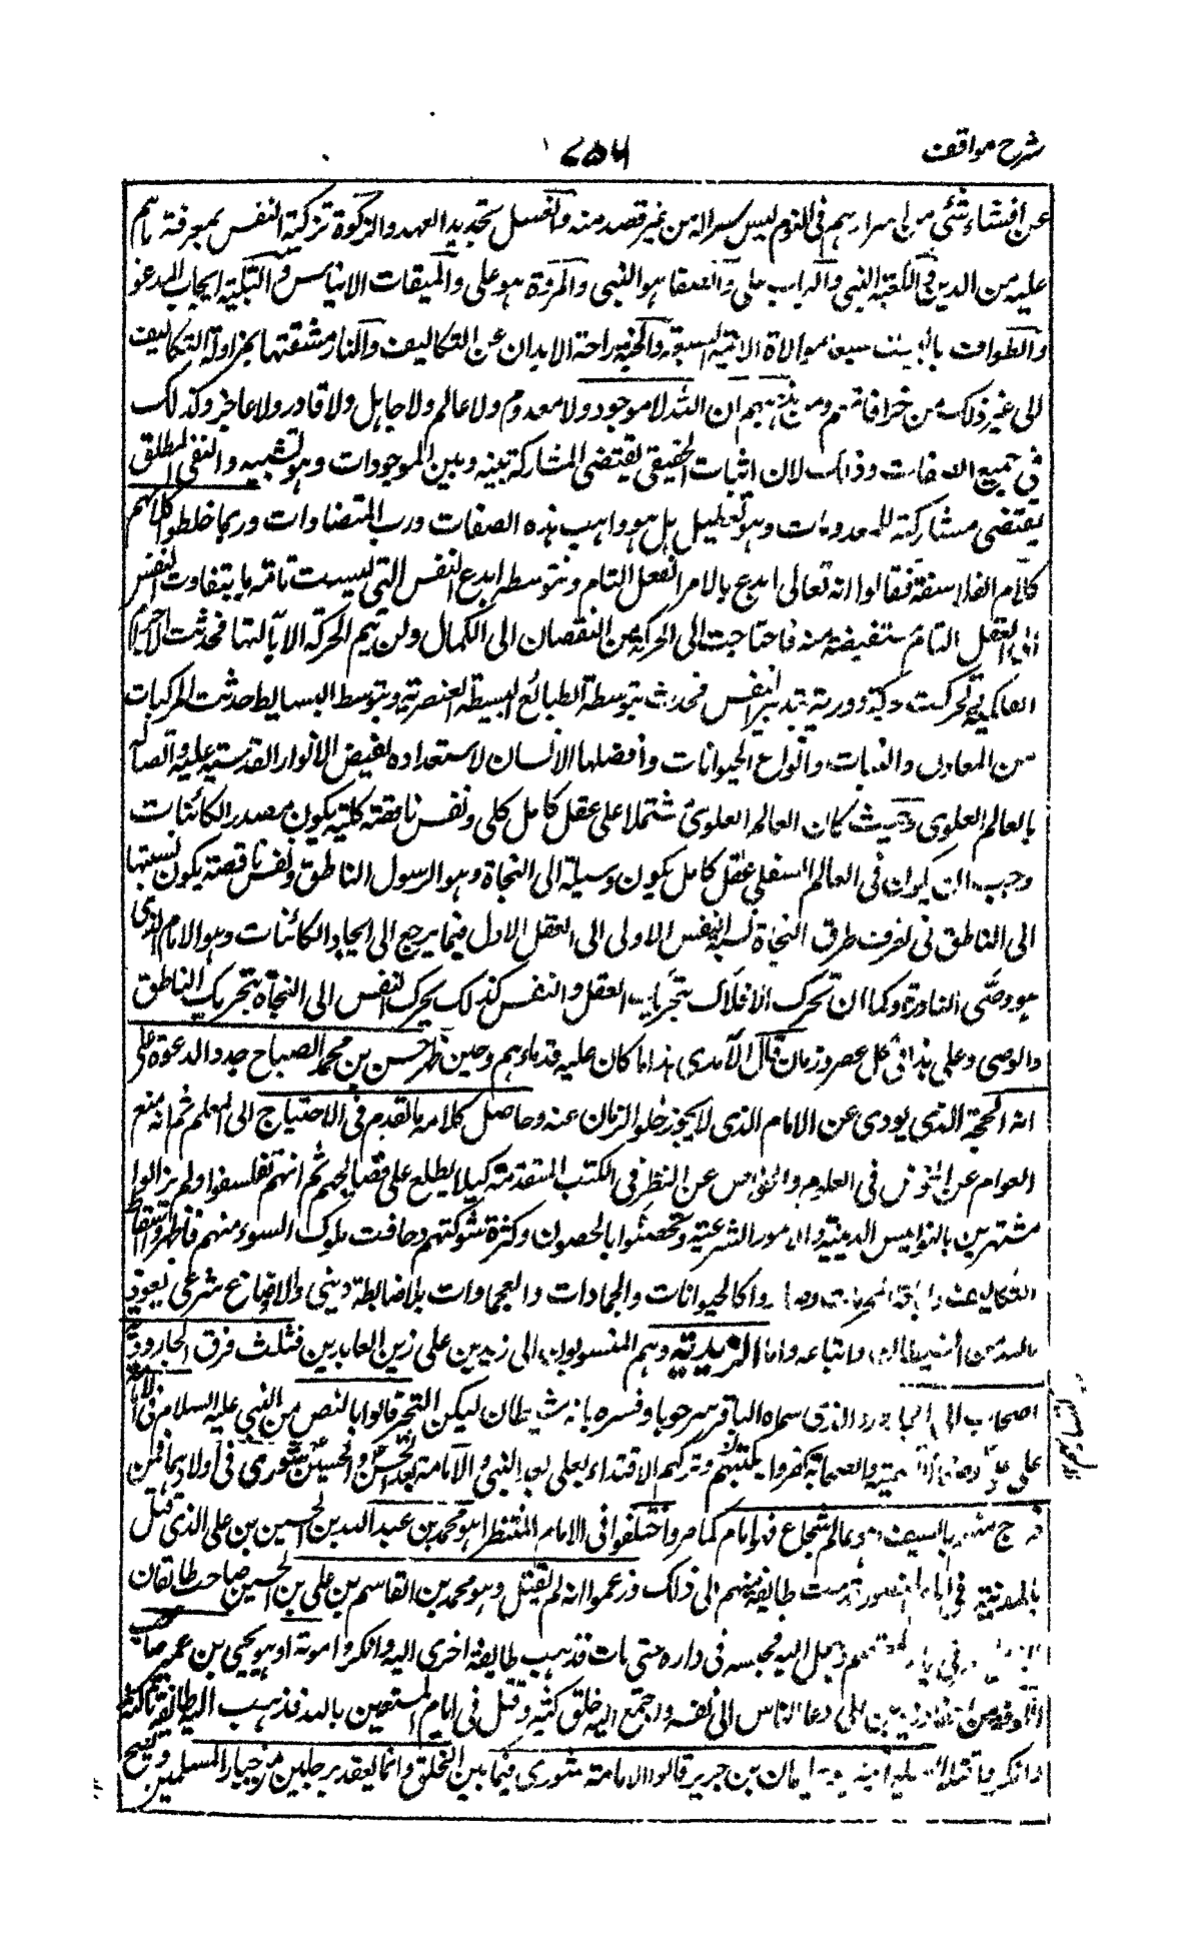 شرح مواقف
۷۵۶
عن افشاء شئ من اسرارهم في النوم ليس سرا له من غير قصد منه والغسل تجديد العهد والزكوة تزكية النفس بمعرفة ما هم
عليه من الدين والكعبة النبي والباب علي والصفا هو النبي والمروة هو علي والميقات الايناس والتلبية اجابة المدعو
والطواف بالبيت سبعا موالاة الائمة السبعة والجنة راحة الابدان عن التكاليف والنار مشقتها بمزاولة التكاليف
الى غير ذلك من خرافاتهم ومن مذهبهم ان الله لا موجود ولا معدوم ولا عالم ولا جاهل ولا قادر ولا عاجز وكذلك
في جميع الصفات وذلك لان اثبات الحقيقي يقتضي المشاركة بينه وبين الموجودات وهو تشبيه والنفي المطلق
يقتضي مشاركته للمعدومات وهو تعطيل بل هو واهب هذه الصفات ورب المتضادات وربما خلطوا كلامهم
بكلام الفلاسفة فقالوا انه تعالى ابدع بالامر العقل التام وبتوسطه ابدع النفس التي ليست تامة فاشتاقت النفس
الى العقل التام مستفيضة منه فاحتاجت الى الحركة من النقصان الى الكمال ولن تتم الحركة الا بآلتها فحدثت الاجرام
الفلكية وتحركت حركة دورية بتدبير النفس فحدثت بتوسطه الطبائع البسيطة العنصرية وبتوسط البسائط حدثت المركبات
من المعادن والنبات وانواع الحيوانات وافضلها الانسان لاستعداده لفيض الانوار القدسية عليه واتصاله
بالعالم العلوي وحيث كان العالم العلوي مشتملا على عقل كامل كلي ونفس ناقصة كلية يكون مصدر الكائنات
وجب ان يكون في العالم السفلي عقل كامل يكون وسيلة الى النجاة وهو الرسول الناطق ونفس ناقصة يكون نسبتها
الى الناطق في تعرف طرق النجاة نسبة النفس الاولى الى العقل الاول فيما يرجع الى ايجاد الكائنات وهو الامام الذي
هو وصي الناطق وكما ان تحرك الافلاك بتحريك العقل والنفس كذلك يحرك النفس الى النجاة بتحريك الناطق
والوصي وعلى هذا في كل عصر وزمان قال الآمدي هذا ما كان عليه قدماءهم وحين ظهر حسن بن محمد الصباح جدد الدعوة على
انه الحجة الذي يودي عن الامام الذي لا يجوز خلو الزمان عنه وحاصل كلامه ما تقدم في الاحتياج الى المعلم ثم انه منع
العوام عن الخوض في العلوم والخواص عن النظر في الكتب المتقدمة كيلا يطلع على فضايحهم ثم انهم تفلسفوا ولم يزالوا
مستهزئين بالنواميس الدينية والامور الشرعية وتحصنوا بالحصون وكثرة شوكتهم وخافت ملوك السوء منهم فاظهروا اسقاط
التكاليف واباحة المحرمات وصاروا كالحيوانات والجمادات والعجماوات بلا ضابطة ديني ولا وازع شرعي نعوذ
بالله من الشيطان واتباعه واما الزيدية وهم المنسوبون الى زيد بن علي زين العابدين فثلث فرق الجارودية
اصحاب ابي الجارود الذي سماه الباقر سرحوبا وفسره بانه شيطان يسكن البحر قالوا بالنص من النبي عليه السلام في الامامة
على علي وصفا لا تسمية والصحابة كفروا بمخالفتهم وتركهم الاقتداء بعلي بعد النبي والامامة بعد الحسن والحسين شورى في اولادهما فمن
خرج منهم بالسيف وهو عالم شجاع فهو امام كما مر واختلفوا في الامام المنتظر اهو محمد بن عبد الله بن الحسين بن علي الذي قتل
بالمدينة في ايام المنصور فذهبت طايفة منهم الى ذلك وزعموا انه لم يقتل او هو محمد بن القاسم بن علي بن الحسين صاحب طالقان
الذي اسر في ايام المعتصم وحمل اليه فحبسه في داره حتى مات فذهب طايفة اخرى اليه وانكروا موته او هو يحيى بن عمير صاحب
الكوفة من احفاد زيد بن علي دعا الناس الى نفسه واجتمع اليه خلق كثير وقتل في ايام المستعين بالله فذهب اليه طايفة ثالثة
وانكروا قتله السليمانية هو سليمان بن جرير قالوا الامامة شورى فيما بين الخلق وانما ينعقد برجلين من خيار المسلمين وتصح